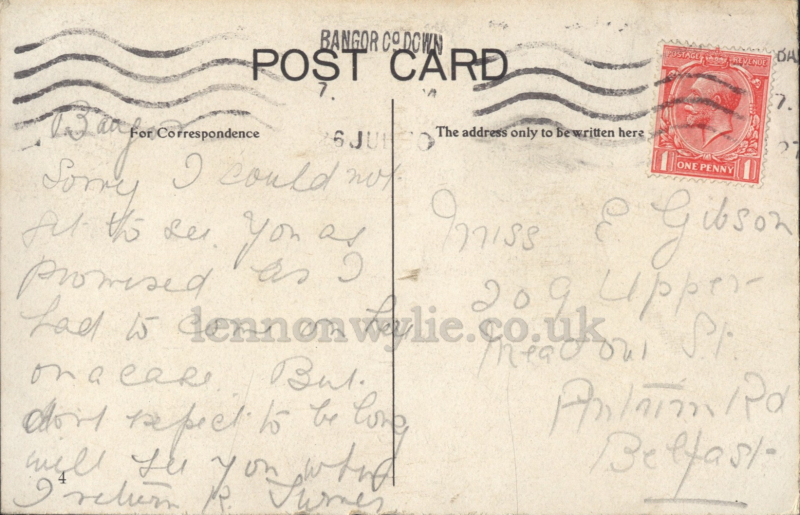 BANGOR Co DOWN
POST CARD
7.
6 JU
For Correspondence
The address only to be written here
POSTAGE REVENUE
1 ONE PENNY 1
BA
7.
Bangor
Sorry I could not
get to see you as
promised as I
had to come on hey
on a case. But
dont expect to be long
will see you when
I return R. Turner
4
Miss E Gibson
209 Upper
Meadow St.
Antrim Rd
Belfast
lennonwylie.co.uk